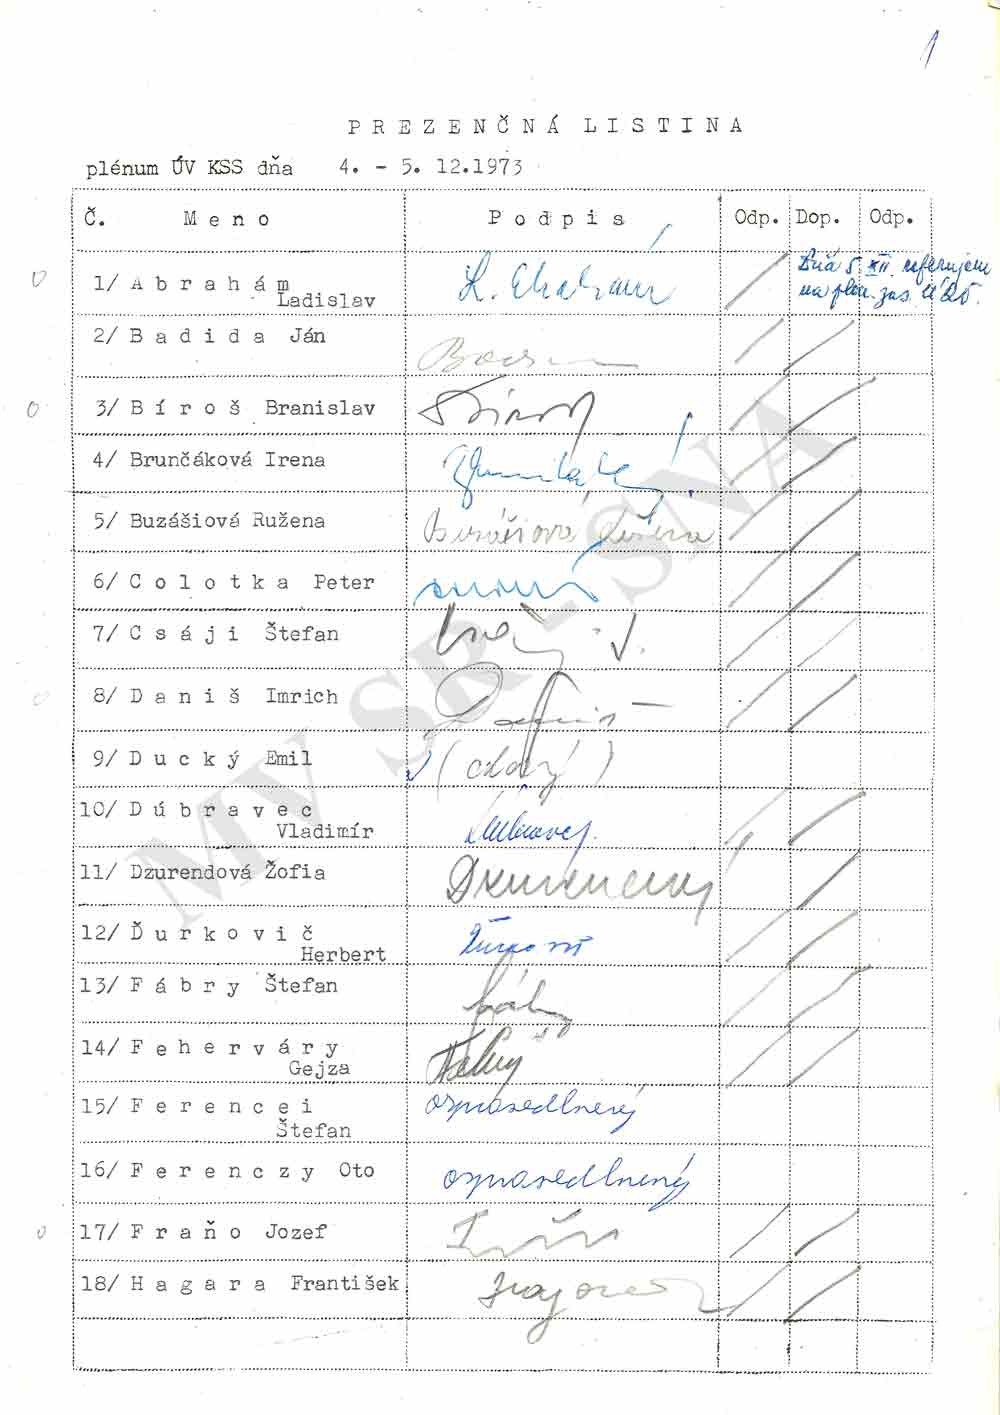 1
PREZENČNÁ LISTINA
plénum ÚV KSS dňa 4. - 5. 12.1973
Č. Meno Podpis Odp. Dop. Odp.
1/ Abrahám
Ladislav
Dňa 5. XII. referujem
na plén. zas.
2/ Badida Ján
3/ Bíroš Branislav
4/ Brunčáková Irena
5/ Buzášiová Ružena Buzášiová Ružena
6/ Colotka Peter
7/ Csáji Štefan
8/ Daniš Imrich
9/ Ducký Emil (chorý)
10/ Dúbravec
Vladimír
11/ Dzurendová Žofia
12/ Ďurkovič
Herbert
13/ Fábry Štefan
14/ Feherváry
Gejza
15/ Ferencei ospravedlnený
Štefan
16/ Ferenczy Oto ospravedlnený
17/ Fraňo Jozef
18/ Hagara František
MV SR - SNA